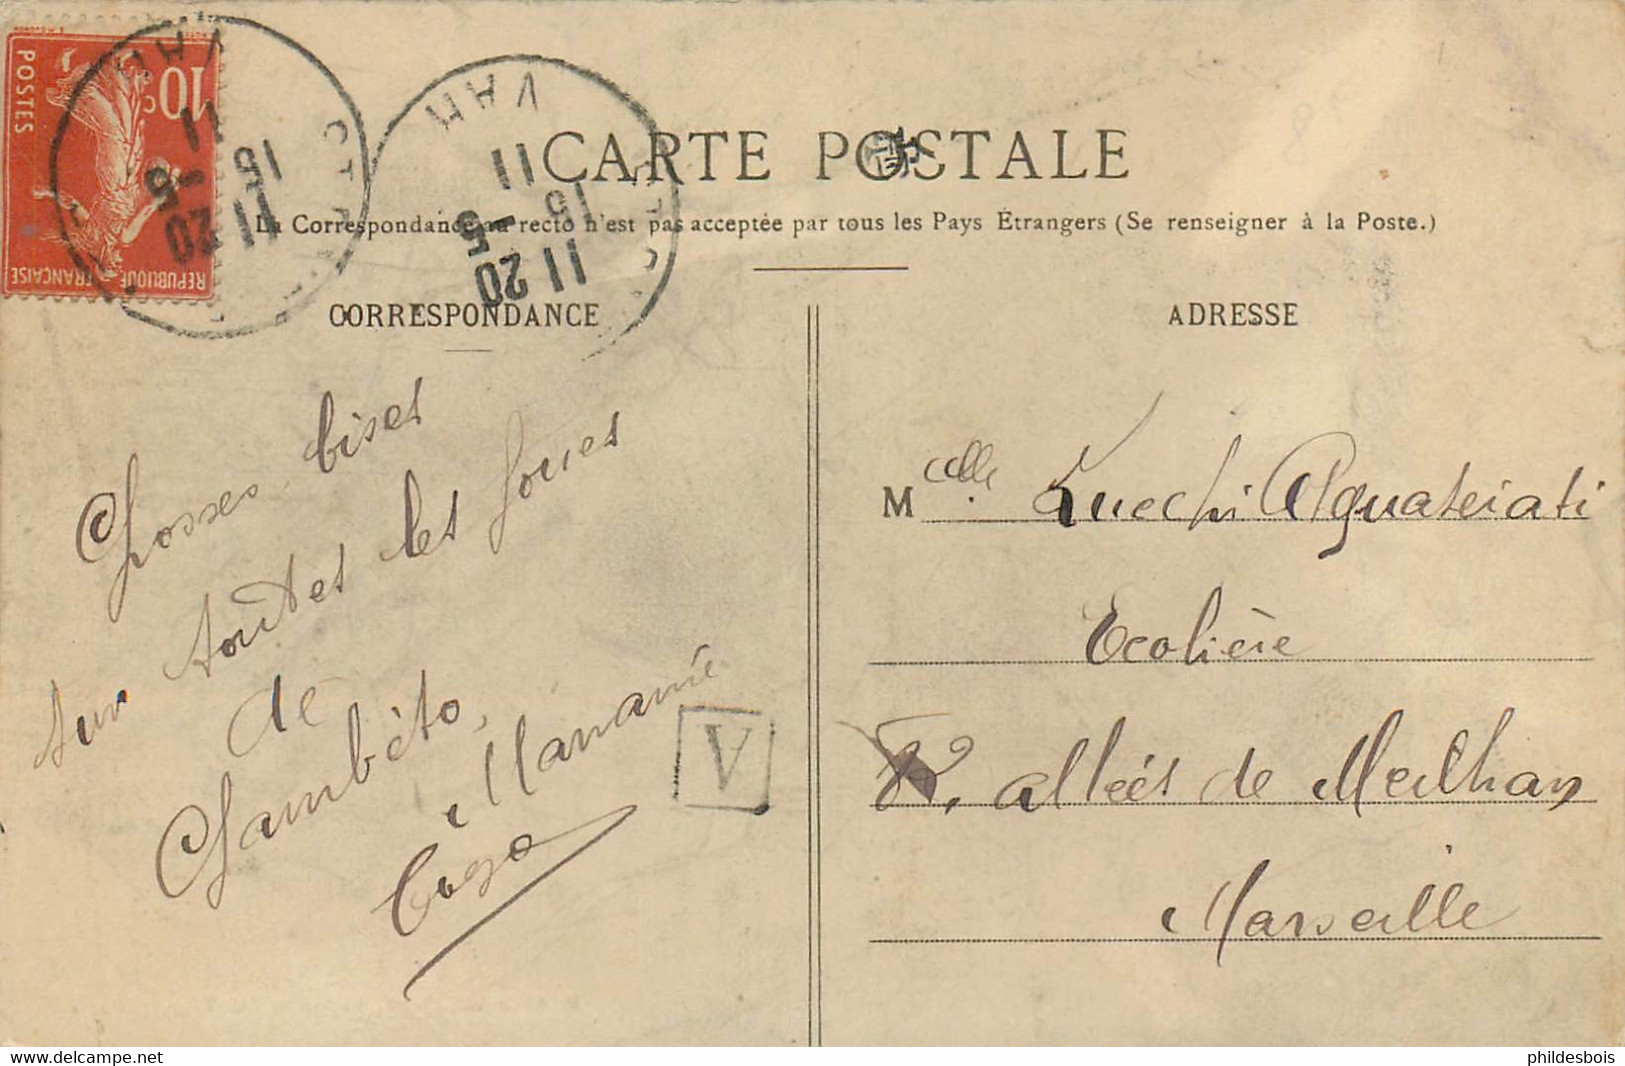 CARTE POSTALE
La Correspondance au recto n'est pas acceptée par tous les Pays Étrangers (Se renseigner à la Poste.)
10c
POSTES
REPUBLIQUE FRANÇAISE
VAR
11 20
15 -5
11
VAR
11 20
15 -5
11
CORRESPONDANCE
Grosses bises
sur toutes les joues
de
Chambéto,
Manamé
A
ADRESSE
Mcelle.
Ecolière
allées de Meilhan
Marseille
www.delcampe.net
phildesbois